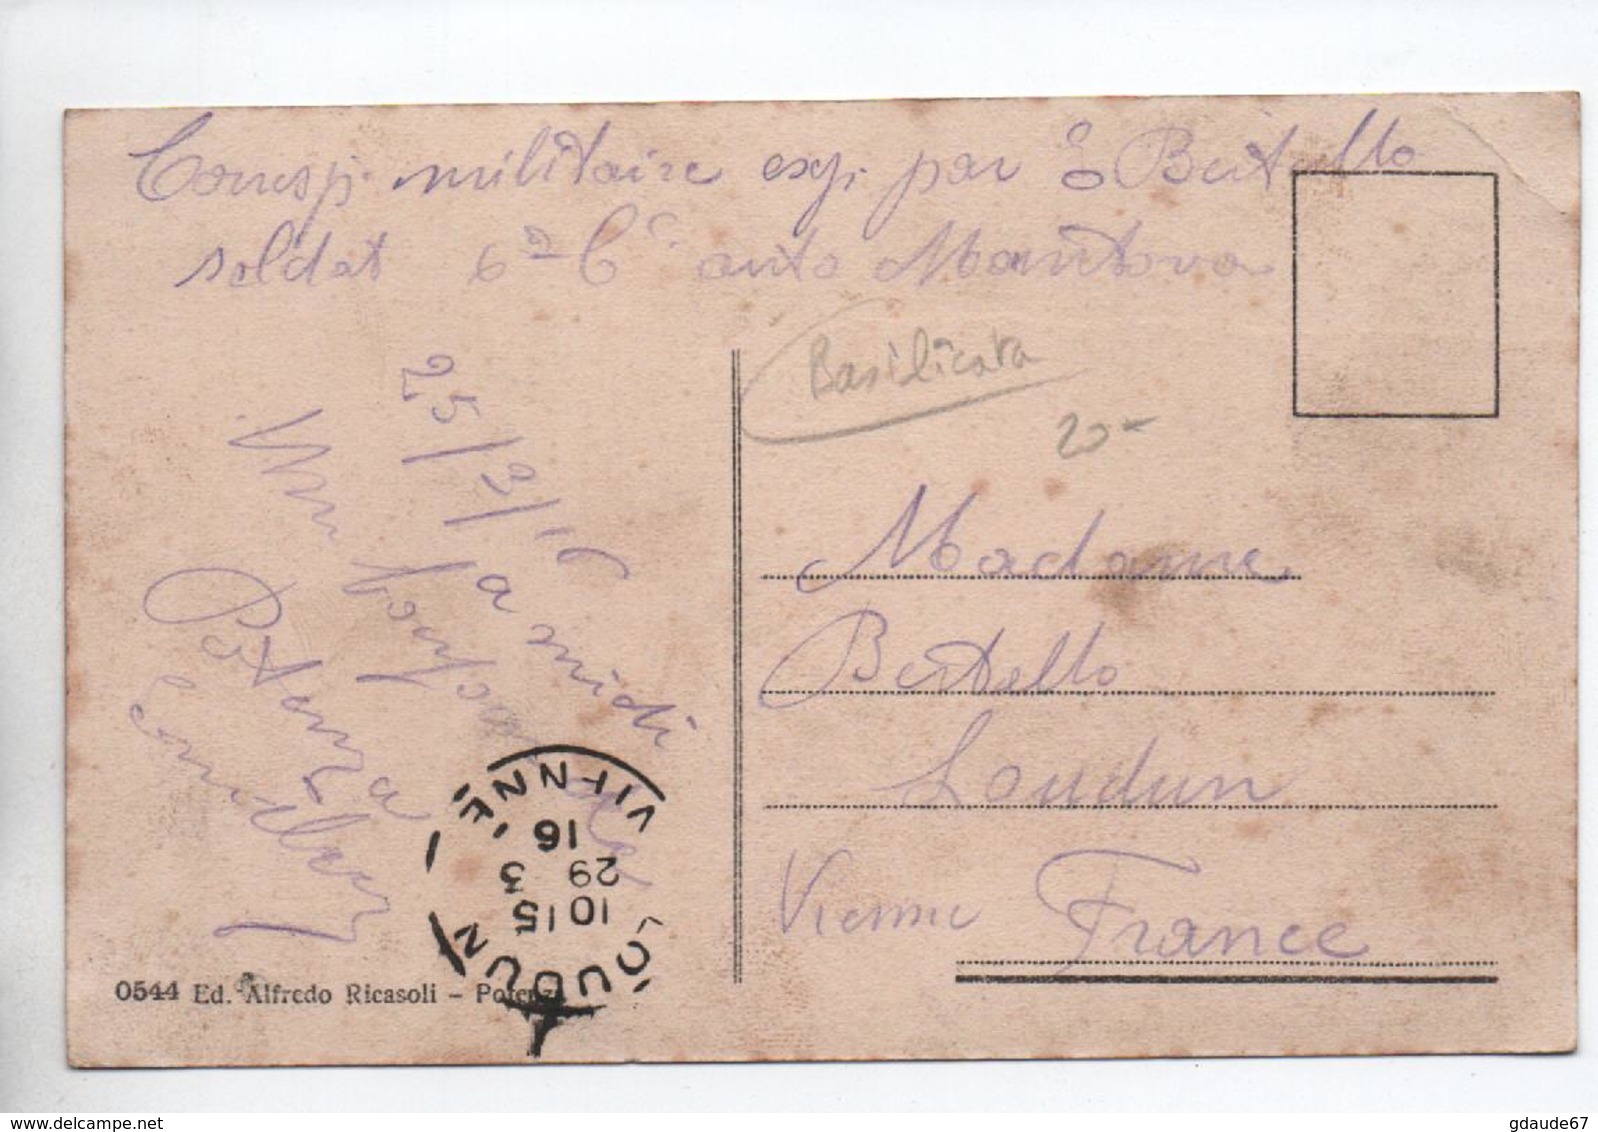 Corresp. militaire exp. par E Bertello
soldat 6e Cie auto Mantova
Basilicata
20-
25/3/16
a midi
Un bonjour de
Potenza
Madame
Bertello
Loudun
Vienne France
LOUDUN
VIENNE
1015
29 3
16
0544 Ed. Alfredo Ricasoli - Potenza
gdaude67